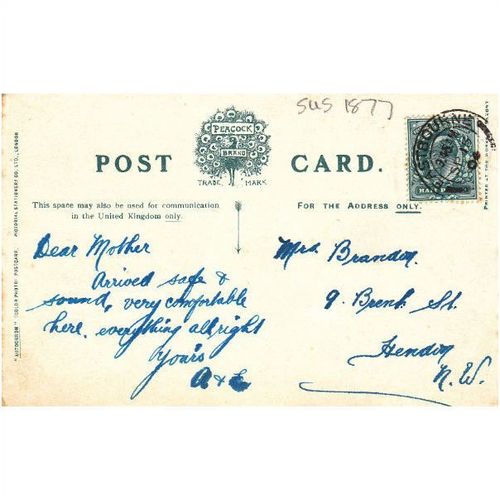 SUS 1877
PEACOCK
BRAND
TRADE MARK
POST CARD.
This space may also be used for communication
in the United Kingdom only.
FOR THE ADDRESS ONLY.
HALF
Dear Mother
Arrived safe &
sound, very comfortable
here. everything allright
Yours
A & L
Mrs Brandon
9. Brent St.
Hendon
N.W.
"AUTOCHROM" (COLOR PHOTO) POSTCARD. PICTORIAL STATIONERY CO. LTD., LONDON